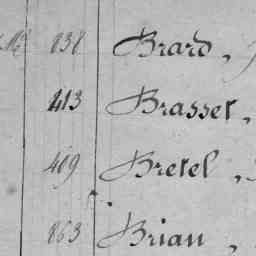 838 Brard,
413 Brasset,
409 Bretel,
863 Brian,